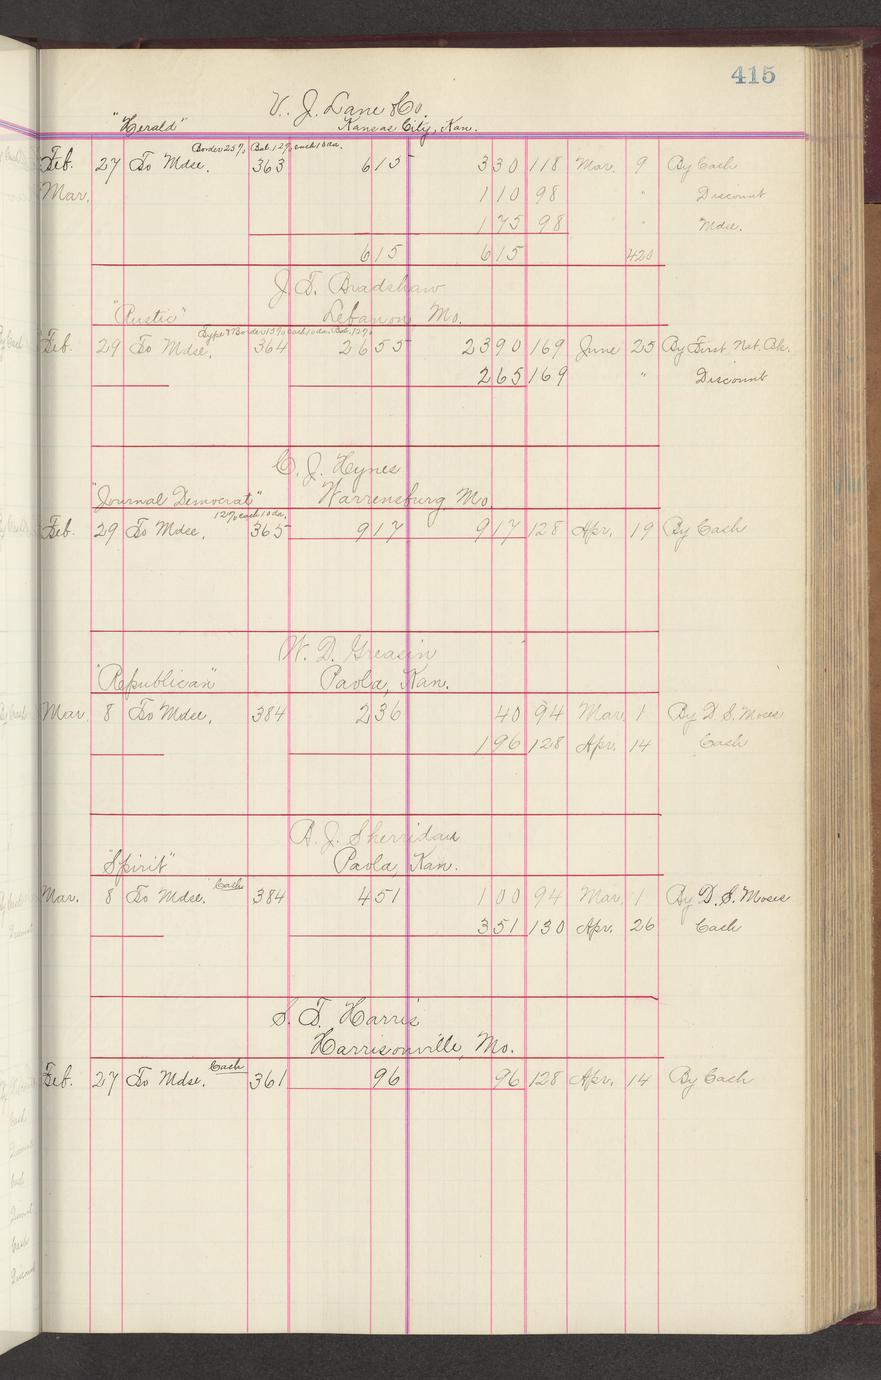 415
V. J. Lane & Co.
"Herald" Kansas City, Kan.
Border 25% Bal. 12% each 10 da.
Feb. 27 To Mdse. 363 615 330 118 Mar. 9 By Cash
Mar. 110 98 " Discount
175 98 " Mdse.
615 615 420
J. T. Bradshaw
"Rustic" Lebanon Mo.
Type & Border 15% each 10 da. Bal. 12%
Feb. 29 To Mdse. 364 2655 2390 169 June 25 By First Nat. Bk.
265 169 " Discount
C. J. Hynes
"Journal Democrat" Warrensburg Mo.
12% each 10 da.
Feb. 29 To Mdse. 365 917 917 128 Apr. 19 By Cash
W. D. Greason
"Republican" Paola, Kan.
Mar. 8 To Mdse. 384 236 40 94 Mar. 1 By D. S. Moses
196 128 Apr. 14 Cash
A. J. Sherridan
"Spirit" Paola, Kan.
Mar. 8 To Mdse. Cash 384 451 100 94 Mar. 1 By D. S. Moses
351 130 Apr. 26 Cash
S. T. Harris
Harrisonville, Mo.
Feb. 27 To Mdse. Cash 361 96 96 128 Apr. 14 By Cash